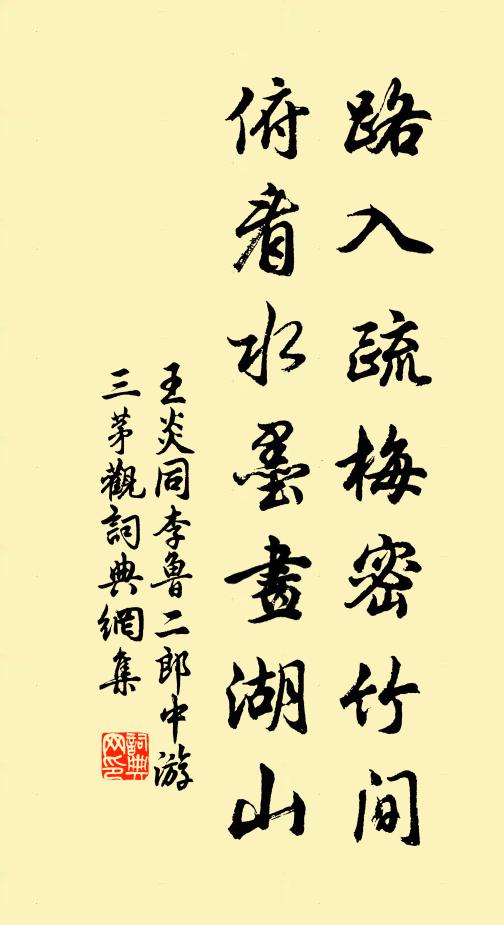 路入疏梅密竹间
俯看水墨畫湖山
王炎同李魯二郎中游
三茅觀詞典網集
詞典网印